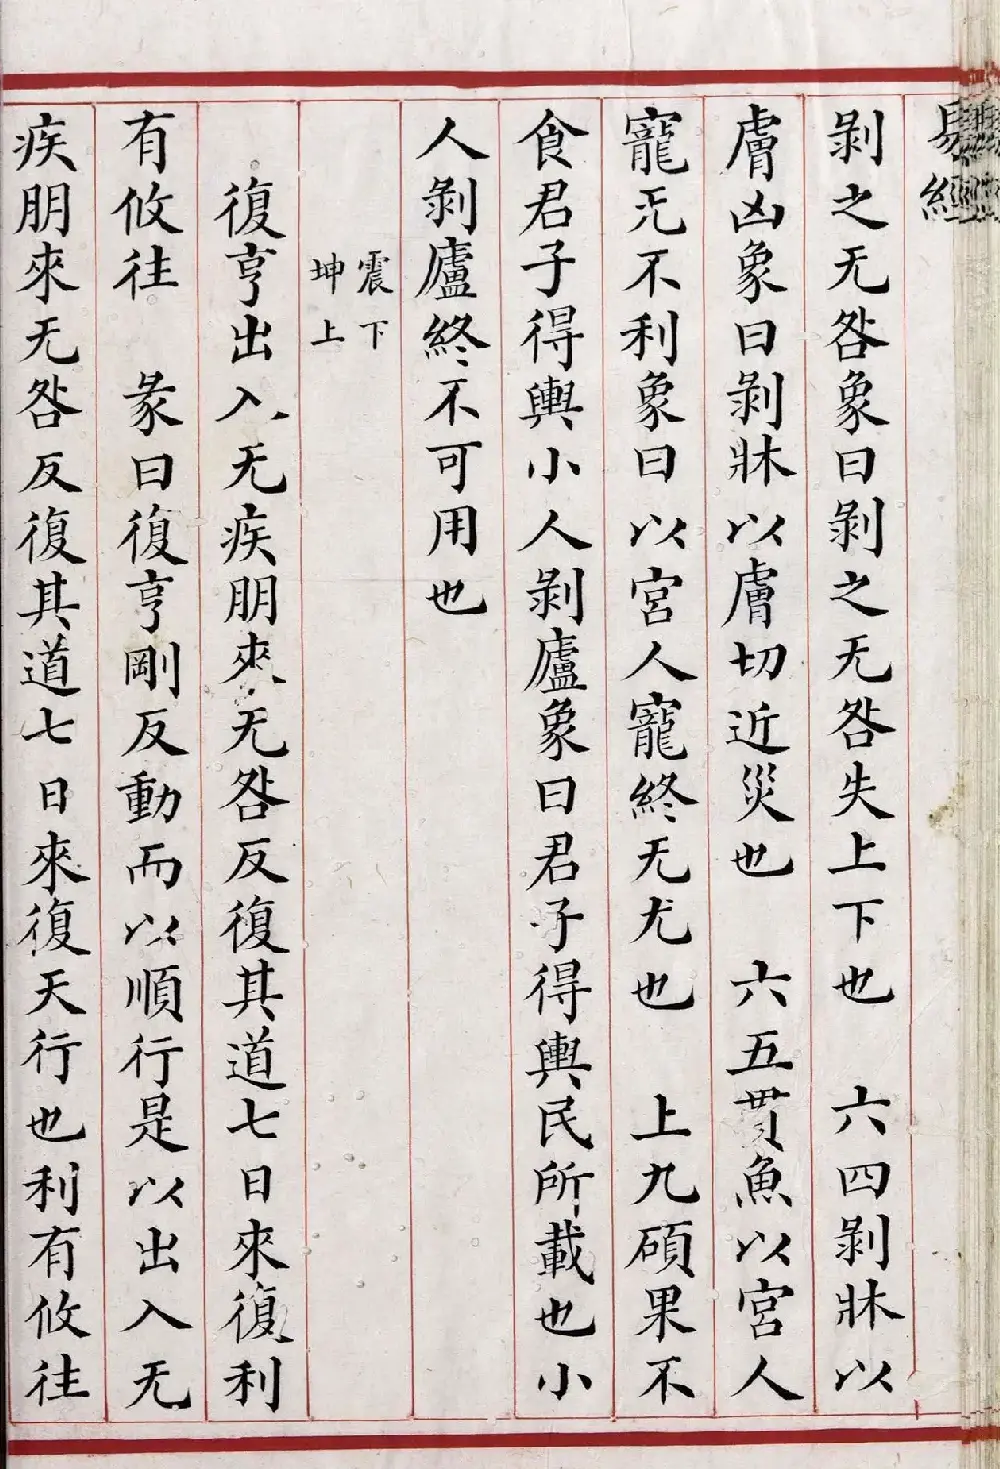 易經
剝之无咎象曰剝之无咎失上下也　六四剝牀以
膚凶象曰剝牀以膚切近災也　六五貫魚以宮人
寵无不利象曰以宮人寵終无尤也　上九碩果不
食君子得輿小人剝廬象曰君子得輿民所載也小
人剝廬終不可用也
震下
坤上
復亨出入无疾朋來无咎反復其道七日來復利
有攸往　彖曰復亨剛反動而以順行是以出入无
疾朋來无咎反復其道七日來復天行也利有攸往